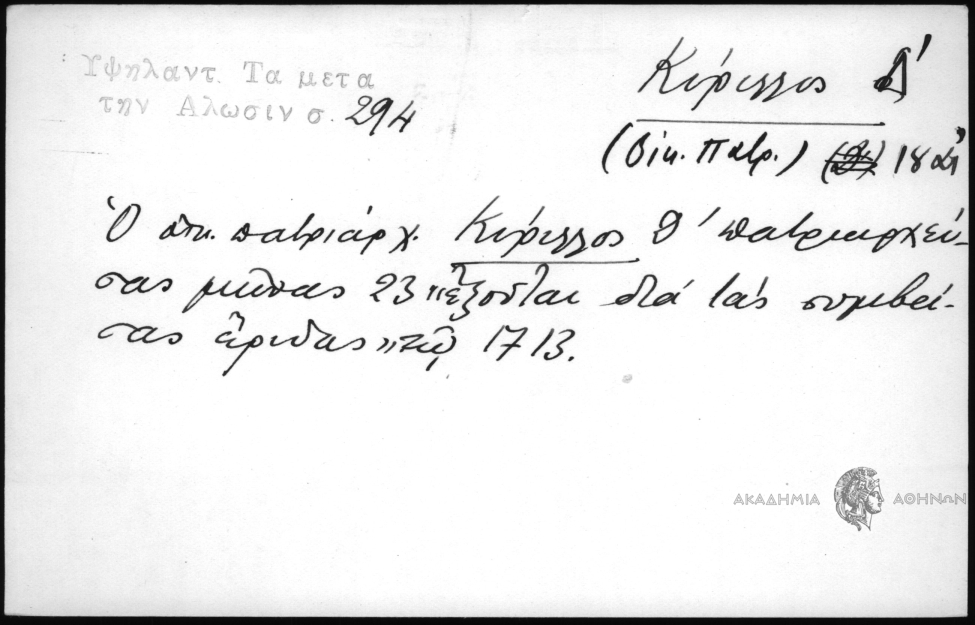 Υψηλαντ. Τα μετα
την Αλωσιν σ. 294
Κύριλλος Δ'
(Οἰκ. Πατρ.) 18 αἰ
Ὁ οἰκ. πατριάρχ. Κύριλλος Δ' πατριαρχεύ-
σας μῆνας 23 "ἐξοῦται διά τάς συμβεί-
σας ἔριδας" τῷ 1713.
ΑΚΑΔΗΜΙΑ ΑΘΗΝΩΝ